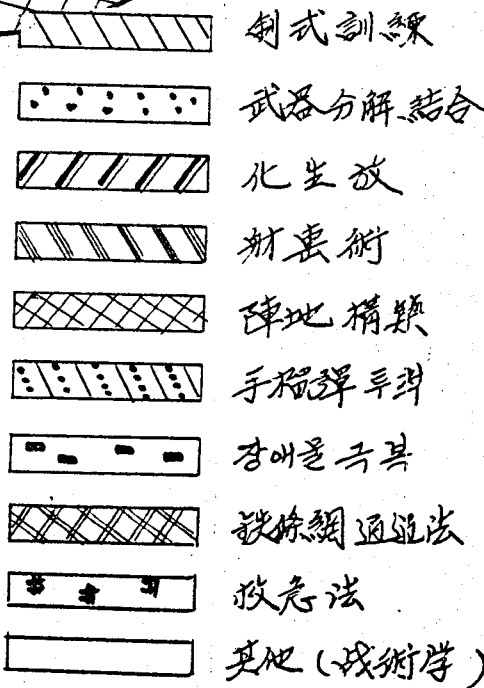 制式訓練
武器分解、結合
化生放
射擊術
陣地構築
手榴彈 투척
장애물 극복
鉄條網 通過法
救急法
其他 (战術学)